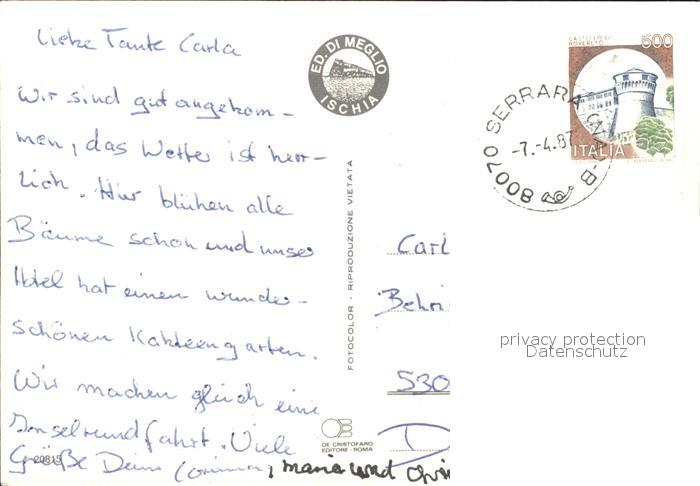 Liebe Tante Carla
Wir sind gut angekom-
men, das Wetter ist herr-
lich. Hier blühen alle
Bäume schon und unser
Hotel hat einen wunder-
schönen Kakteengarten.
Wir machen gleich eine
Inselrundfahrt. Viele
Grüße Deine Corinna, maria und
ED. DI MEGLIO
ISCHIA
FOTOCOLOR - RIPRODUZIONE VIETATA
20815
DE CRISTOFARO
EDITORE - ROMA
CASTELLO DI
ROVERETO
500
ITALIA
80070 SERRARA
-7.-4.87
Carl
Behri
530
D
privacy protection
Datenschutz